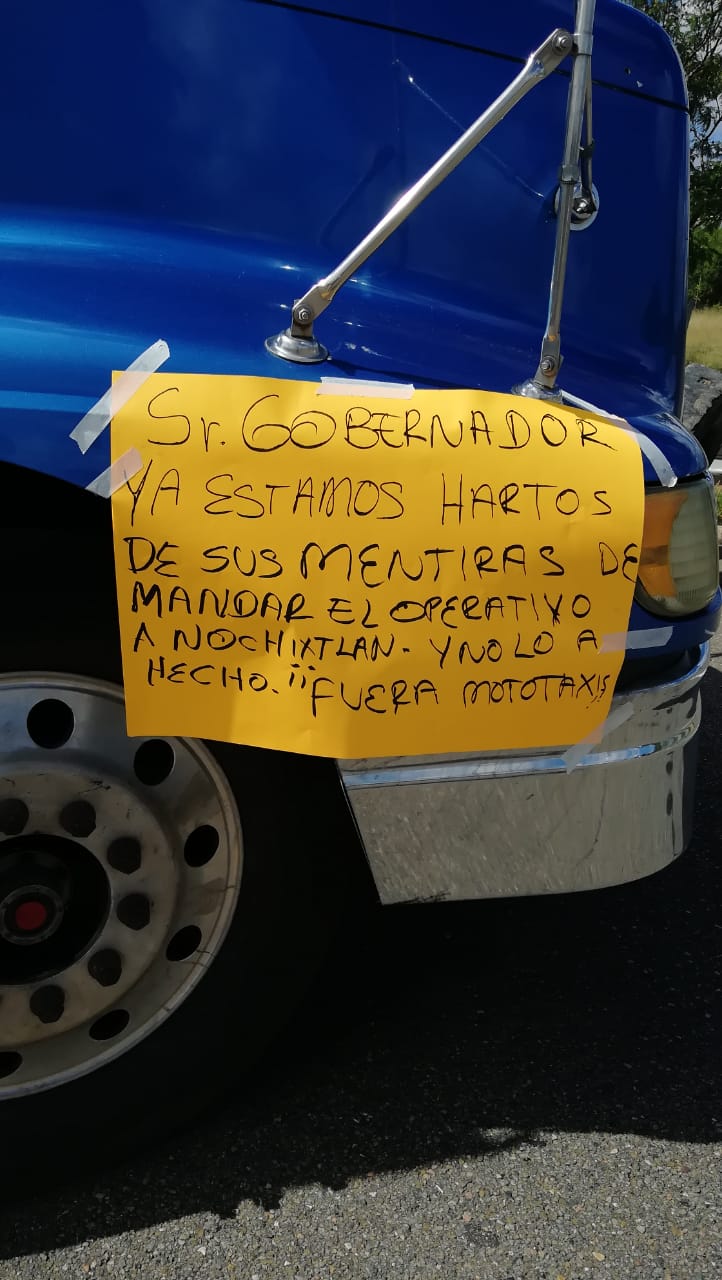 Sr. GOBERNADOR
YA ESTAMOS HARTOS
DE SUS MENTIRAS DE
MANDAR EL OPERATIVO
A NOCHIXTLAN. Y NO LO A
HECHO. ¡¡FUERA MOTOTAXIS